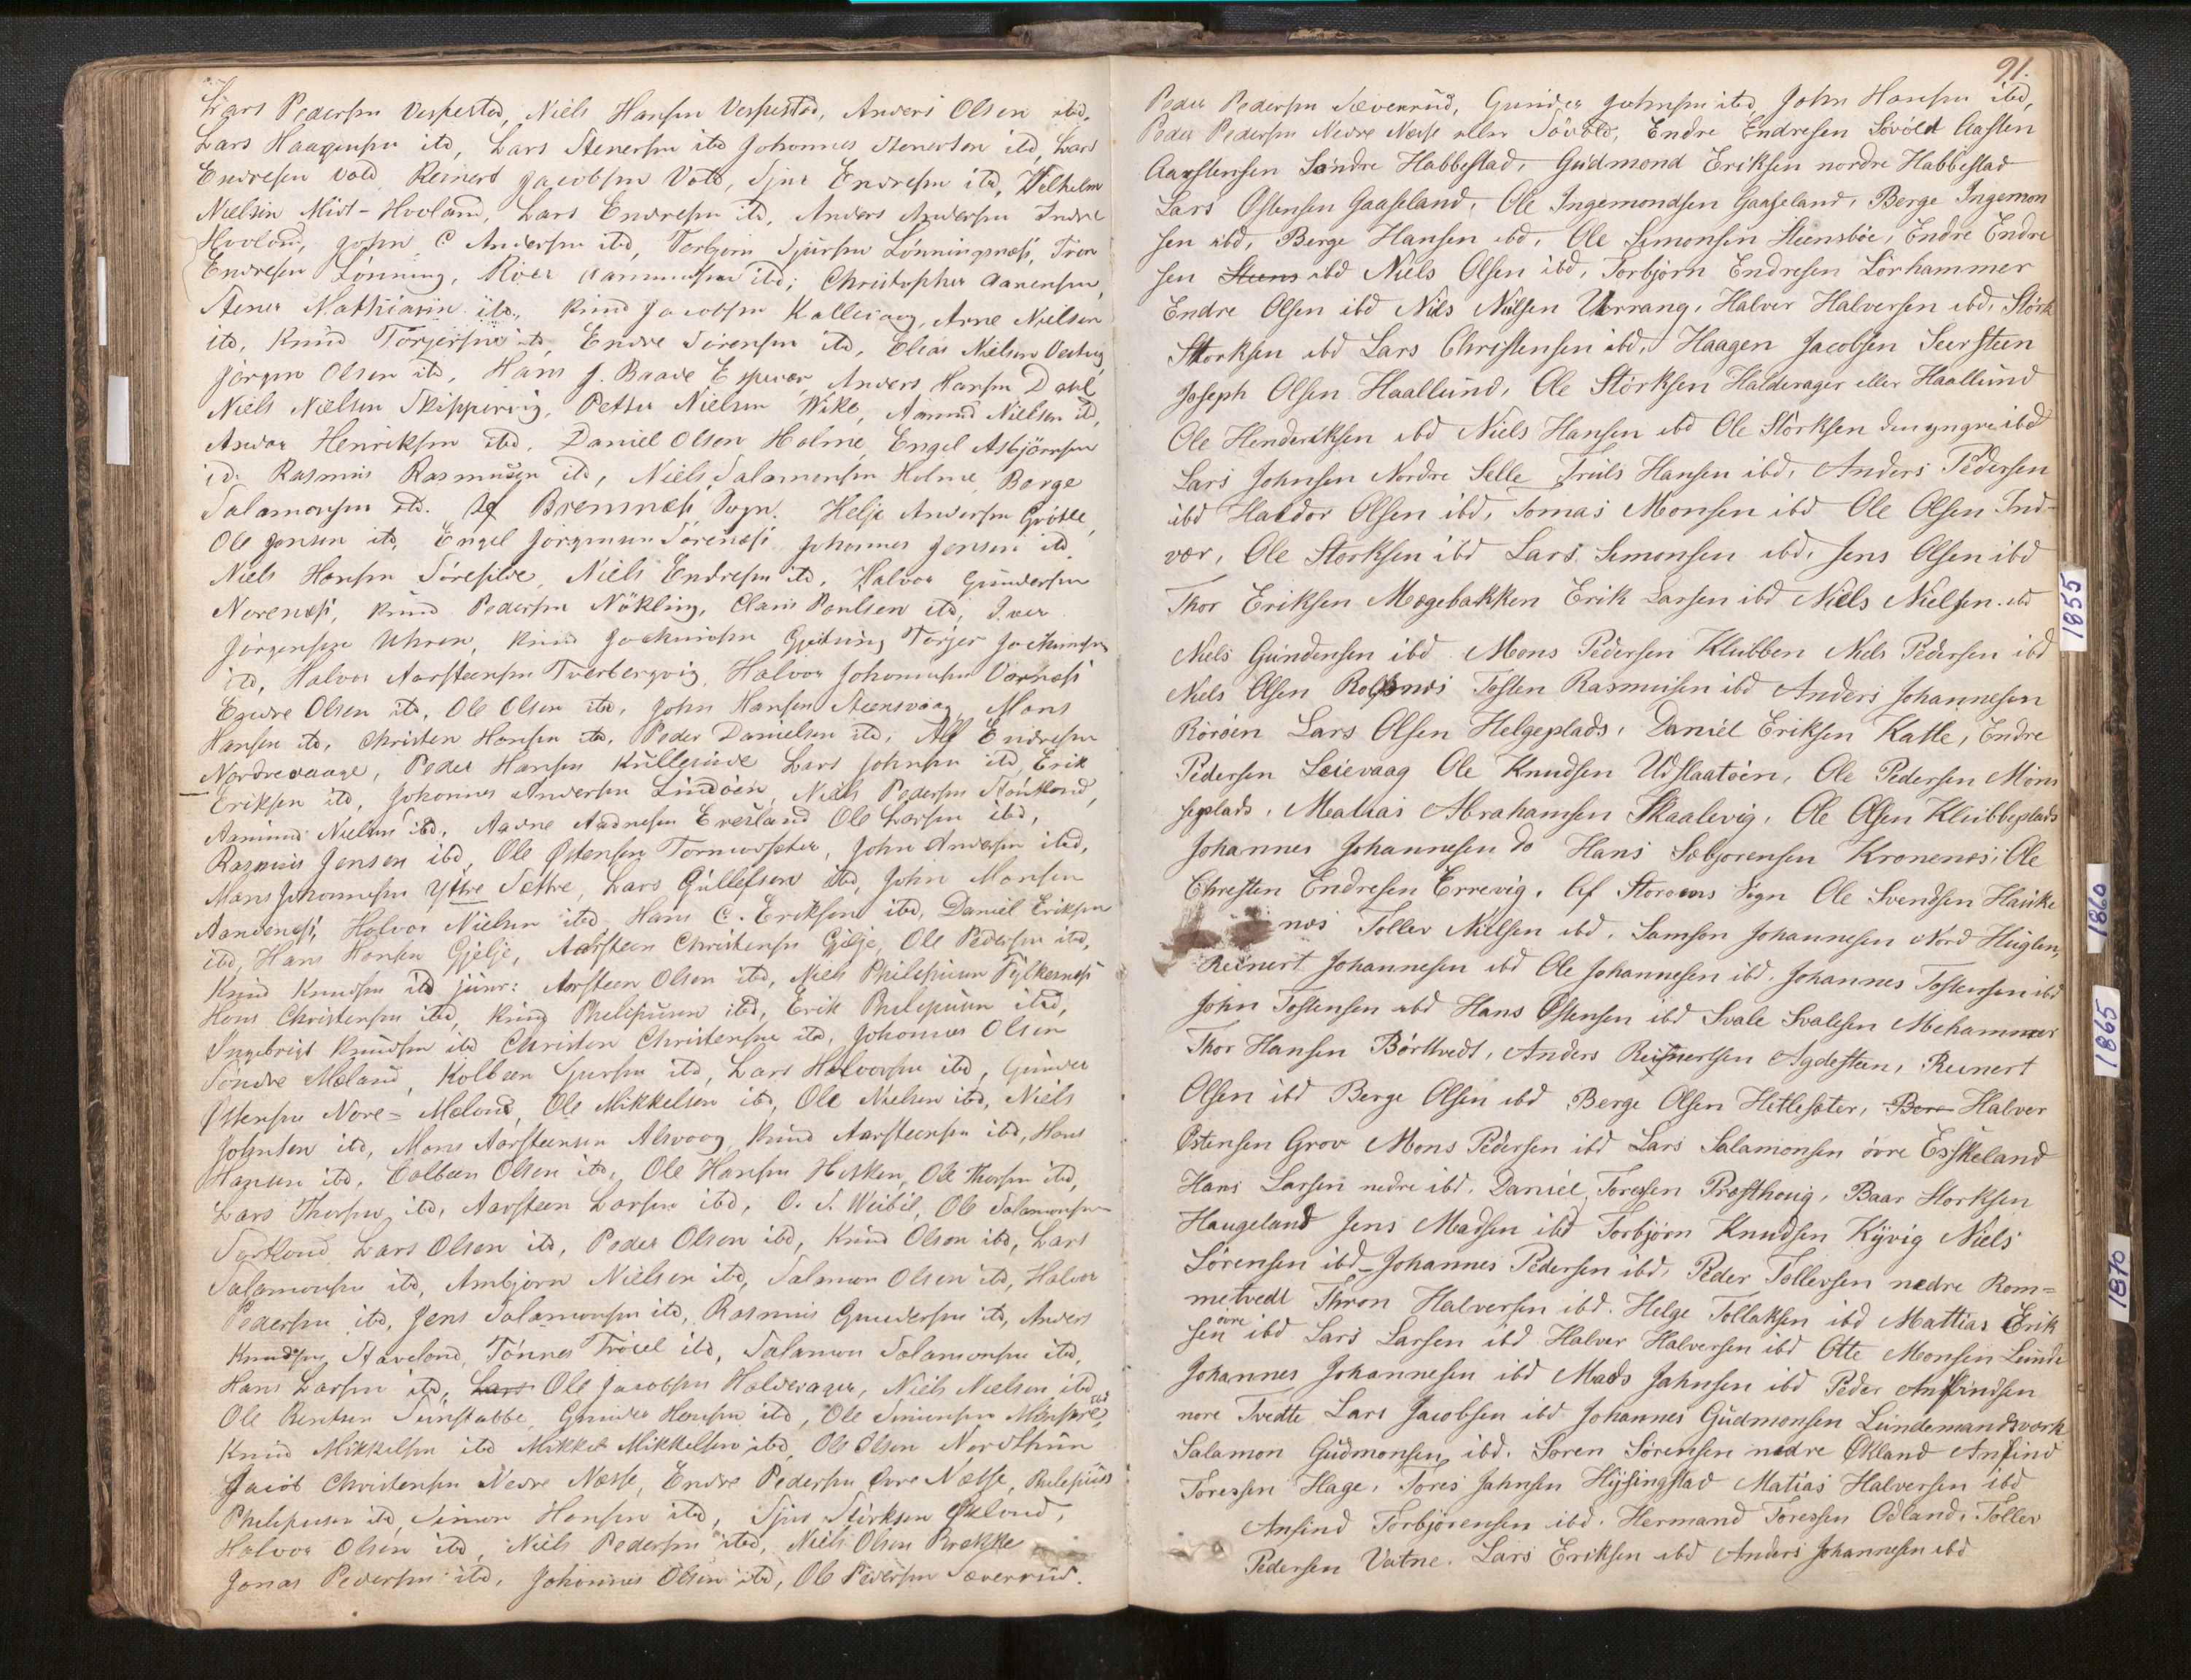 Lars Pedersen Vespestad, Niels Hansen Vespestad, Anders Olsen ibd,
Lars Haagensen ibd, Lars Stenersen ibd Johannes Stenersen ibd, Lars
Endresen Vold Reinert Jacobsen Vold, Sjur Endresen ibd, Wilhelm
Nielsen Midt-Hovland, Lars Endresen ibd, Anders Andersen Indre
Hovland, John C Andersen ibd, Torbjörn Sjursen Lönningsnæs,
Endresen Lönning, ibd; Christopher Aanensen,
Stener Mathiasen ibd, Knud Jacobsen Kallevaag, Arne Nielsen
ibd, Knud Torjersen ibd, Endre Sörensen ibd, Elias Nielsen
Jörgen Olsen ibd, Hans J. Baade Espevær Anders Hansen Dahl
Niels Nielsen Skippervig, Petter Nielsen Wike, Aamund Nielsen ibd,
Henriksen ibd, Daniel Olsen Holme, Engel Asbjörnsen
id. Rasmus Rasmusen ibd, Niels Salamonsen Holme Børge
Salamonsen ibd. Af Bremnæs Sogn. Helje Andersen Gröthe,
Ole Jonsen ibd, Engel Jörgensen Sörenæs Johannes Jensen ibd
Niels Hansen Söresilde, Niels Endresen ibd, Halvor Gundersen
Norenæs, Knud Pedersen Nökling, Claus Poulsen ibd, Iver
Jörgensen Uhren, Knud Jochumsen Gjedung Torjer Jochumsen
ibd, Halvor Aarsteensen Tverbergvig, Halvor Johannesen Vornæs
Endre Olsen ibd, Ole Olsen ibd, John Hansen Steensvaag, Mons
Hansen ibd, Christen Hansen ibd, Peder Danielsen ibd, Alf Endresen
Nordrevaage, Peder Hansen Kulleseide Lars Johnsen ibd, Erik
Eriksen ibd, Johannes Andersen Lindöen, Niels Pedersen Stoutland,
Aamund Nielsen ibd, Aadne Aadnesen Eresland Ole Larsen ibd,
Rasmus Jensen ibd, Ole Östensen Tornesæter, John Andersen ibd,
Mons Johannesen Yttre Sættre, Lars Gullefsen ibd, John Monsen
Aandenæs, Halvor Nielsen ibd Hans C. Eriksen ibd, Daniel Eriksen
ibd, Hans Hansen Gjelje, Aarsteen Christensen Gjelje, Ole Pedersen ibd,
Knud Knudsen ibd junr: Aarsteen Olsen ibd, Niels Philipusen Fylkesnæs
Hans Christensen ibd, Knud Philipusen ibd, Erik Philipusen ibd,
Ingebrigt Knudsen ibd Christen Christensen ibd, Johannes Olsen
Söndre Mæland, Kolbeen Sjursen ibd, Lars Halvorsen ibd, Gunder
Östensen Nore-Mæland, Ole Mikkelsen ibd, Ole Nielsen ibd, Niels
Johnsen ibd, Mons Aarsteensen Alsvaag, Knud Aarsteensen ibd, Hans
Hansen ibd, Colbeen Olsen ibd, Ole Hansen Hisken, Ole Thorsen ibd,
Lars Thorsen ibd, Aarsteen Larsen ibd, O. S. Weibil, Ole Salamonsen
Sortland, Lars Olsen ibd, Peder Olsen ibd, Knud Olsen ibd, Lars
Salamonsen ibd, Ambjörn Nielsen ibd, Salamon Olsen ibd, Halvor
Pedersen ibd, Jens Salamonsen ibd, Rasmus Gundersen ibd, Anders
Knudsen Staveland, Tönnes Tröiel ibd, Salamon Salamonsen ibd,
Hans Larsen ibd, Lars Ole Jacobsen Haldevager, Niels Nielsen ibd
Ole Bentsen Seinstabbe, Gunder Hansen ibd, Ole Simonsen ibd
Knud Mikkelsen ibd Mikkel Mikkelsen ibd, Ole Olsen Nordthun
Jacob Christensen Nedre Næsse, Endre Pedersen Övre Næsse, Philipus
Philipusen ibd, Simon Hansen ibd, Sjur Störksen Økland,
Halvor Olsen ibd, Niels Pedersen ibd, Niels Olsen Brække
Jonas Pedersen ibd, Johannes Olsen ibd, Ole Pedersen Sæverud.
91.
Peder Pedersen Sæverud, Gunder Johnsen ibd, John Hansen ibd,
Peder Pedersen Nedre Næse eller Sövold, Endre Endresen Sövold Aasten
Aarstensen Söndre Habbestad, Gudmond Eriksen nordre Habbestad
Lars Østensen Gaaseland, Ole Ingemondsen Gaaseland, Berge Ingemon
sen ibd, Berge Hansen ibd, Ole Simonsen Steensböe, Endre Endre
sen Steens ibd Niels Olsen ibd, Torbjörn Endresen Lörhammer
Endre Olsen ibd Nils Nilsen Urrang, Halver Halversen ibd, Störk
Storksen ibd Lars Christensen ibd, Haagen Jacobsen Seersteen
Joseph Olsen Haallund, Ole Störksen Haldevager eller Haallund
Ole Henderiksen ibd Niels Hansen ibd Ole Störksen den yngre ibd
Lars Johnsen Nordre Selle Truls Hansen ibd, Anders Pedersen
ibd Haldor Olsen ibd, Tomas Monsen ibd Ole Olsen Ind-
vær, Ole Storksen ibd Lars Simonsen ibd, Jens Olsen ibd
Thor Eriksen Mogebakken Erik Larsen ibd Niels Nielsen ibd
Niels Gundensen ibd Mons Pedersen Klubben Niels Pedersen ibd
Niels Olsen Rolfsnes Tosten Rasmusen ibd Anders Johannesen
Röröen Lars Olsen Helgeplads, Daniel Eriksen Katle, Endre
Pedersen Leievaag Ole Knudsen Udslaatöen, Ole Pedersen Möns
seplads, Matias Abrahamsen Skaalevig, Ole Olsen Klubbeplads
Johannes Johannesen do Hans Sebjörensen Kronenes, Ole
Christen Endresen Errevig. Af Storöens Sogn Ole Svendsen Hauke
nes Tollev Nilsen ibd, Samson Johannesen Nord Huglen,
Reinert Johannesen ibd Ole Johannesen ibd, Johannes Tostensen ibd
John Tostensen ibd Hans Østensen ibd Svale Svalesen Mehammer
Thor Hansen Börtvedt, Anders Reinertsen Agdesteen, Reinert
Olsen ibd Berge Olsen ibd Berge Olsen Hetlesæter, Bere Halver
Østensen Grov Mons Pedersen ibd Lars Salamonsen övre Eskeland
Hans Larsen nedre ibd, Daniel Toresen Præsthoug, Baar Storksen
Haugeland Jens Madsen ibd Torbjörn Knudsen Kyvig Niels
Sörensen ibd Johannes Pedersen ibd, Peder Tollevsen nedre Rom-
metvedt Thron Halversen ibd. Helge Tollaksen ibd Mattias Erik
sen övre ibd Lars Larsen ibd Halver Halversen ibd Otte Monsen Lunde
Johannes Johannesen ibd Mads Jahnsen ibd Peder Anfindsen
nore Tvedte Lars Jacobsen ibd Johannes Gudmonsen Lundemandsværk
Salamon Gudmonsen ibd. Sören Sörensen nedre Økland Anfind
Toressen Hage, Tores Jahnsen Hysingstad Matias Halversen ibd
Anfind Torbjörensen ibd. Hermand Toressen Odland, Tollev
Pedersen Vatne. Lars Eriksen ibd Anders Johannesen ibd
1855
1860
1865
1870